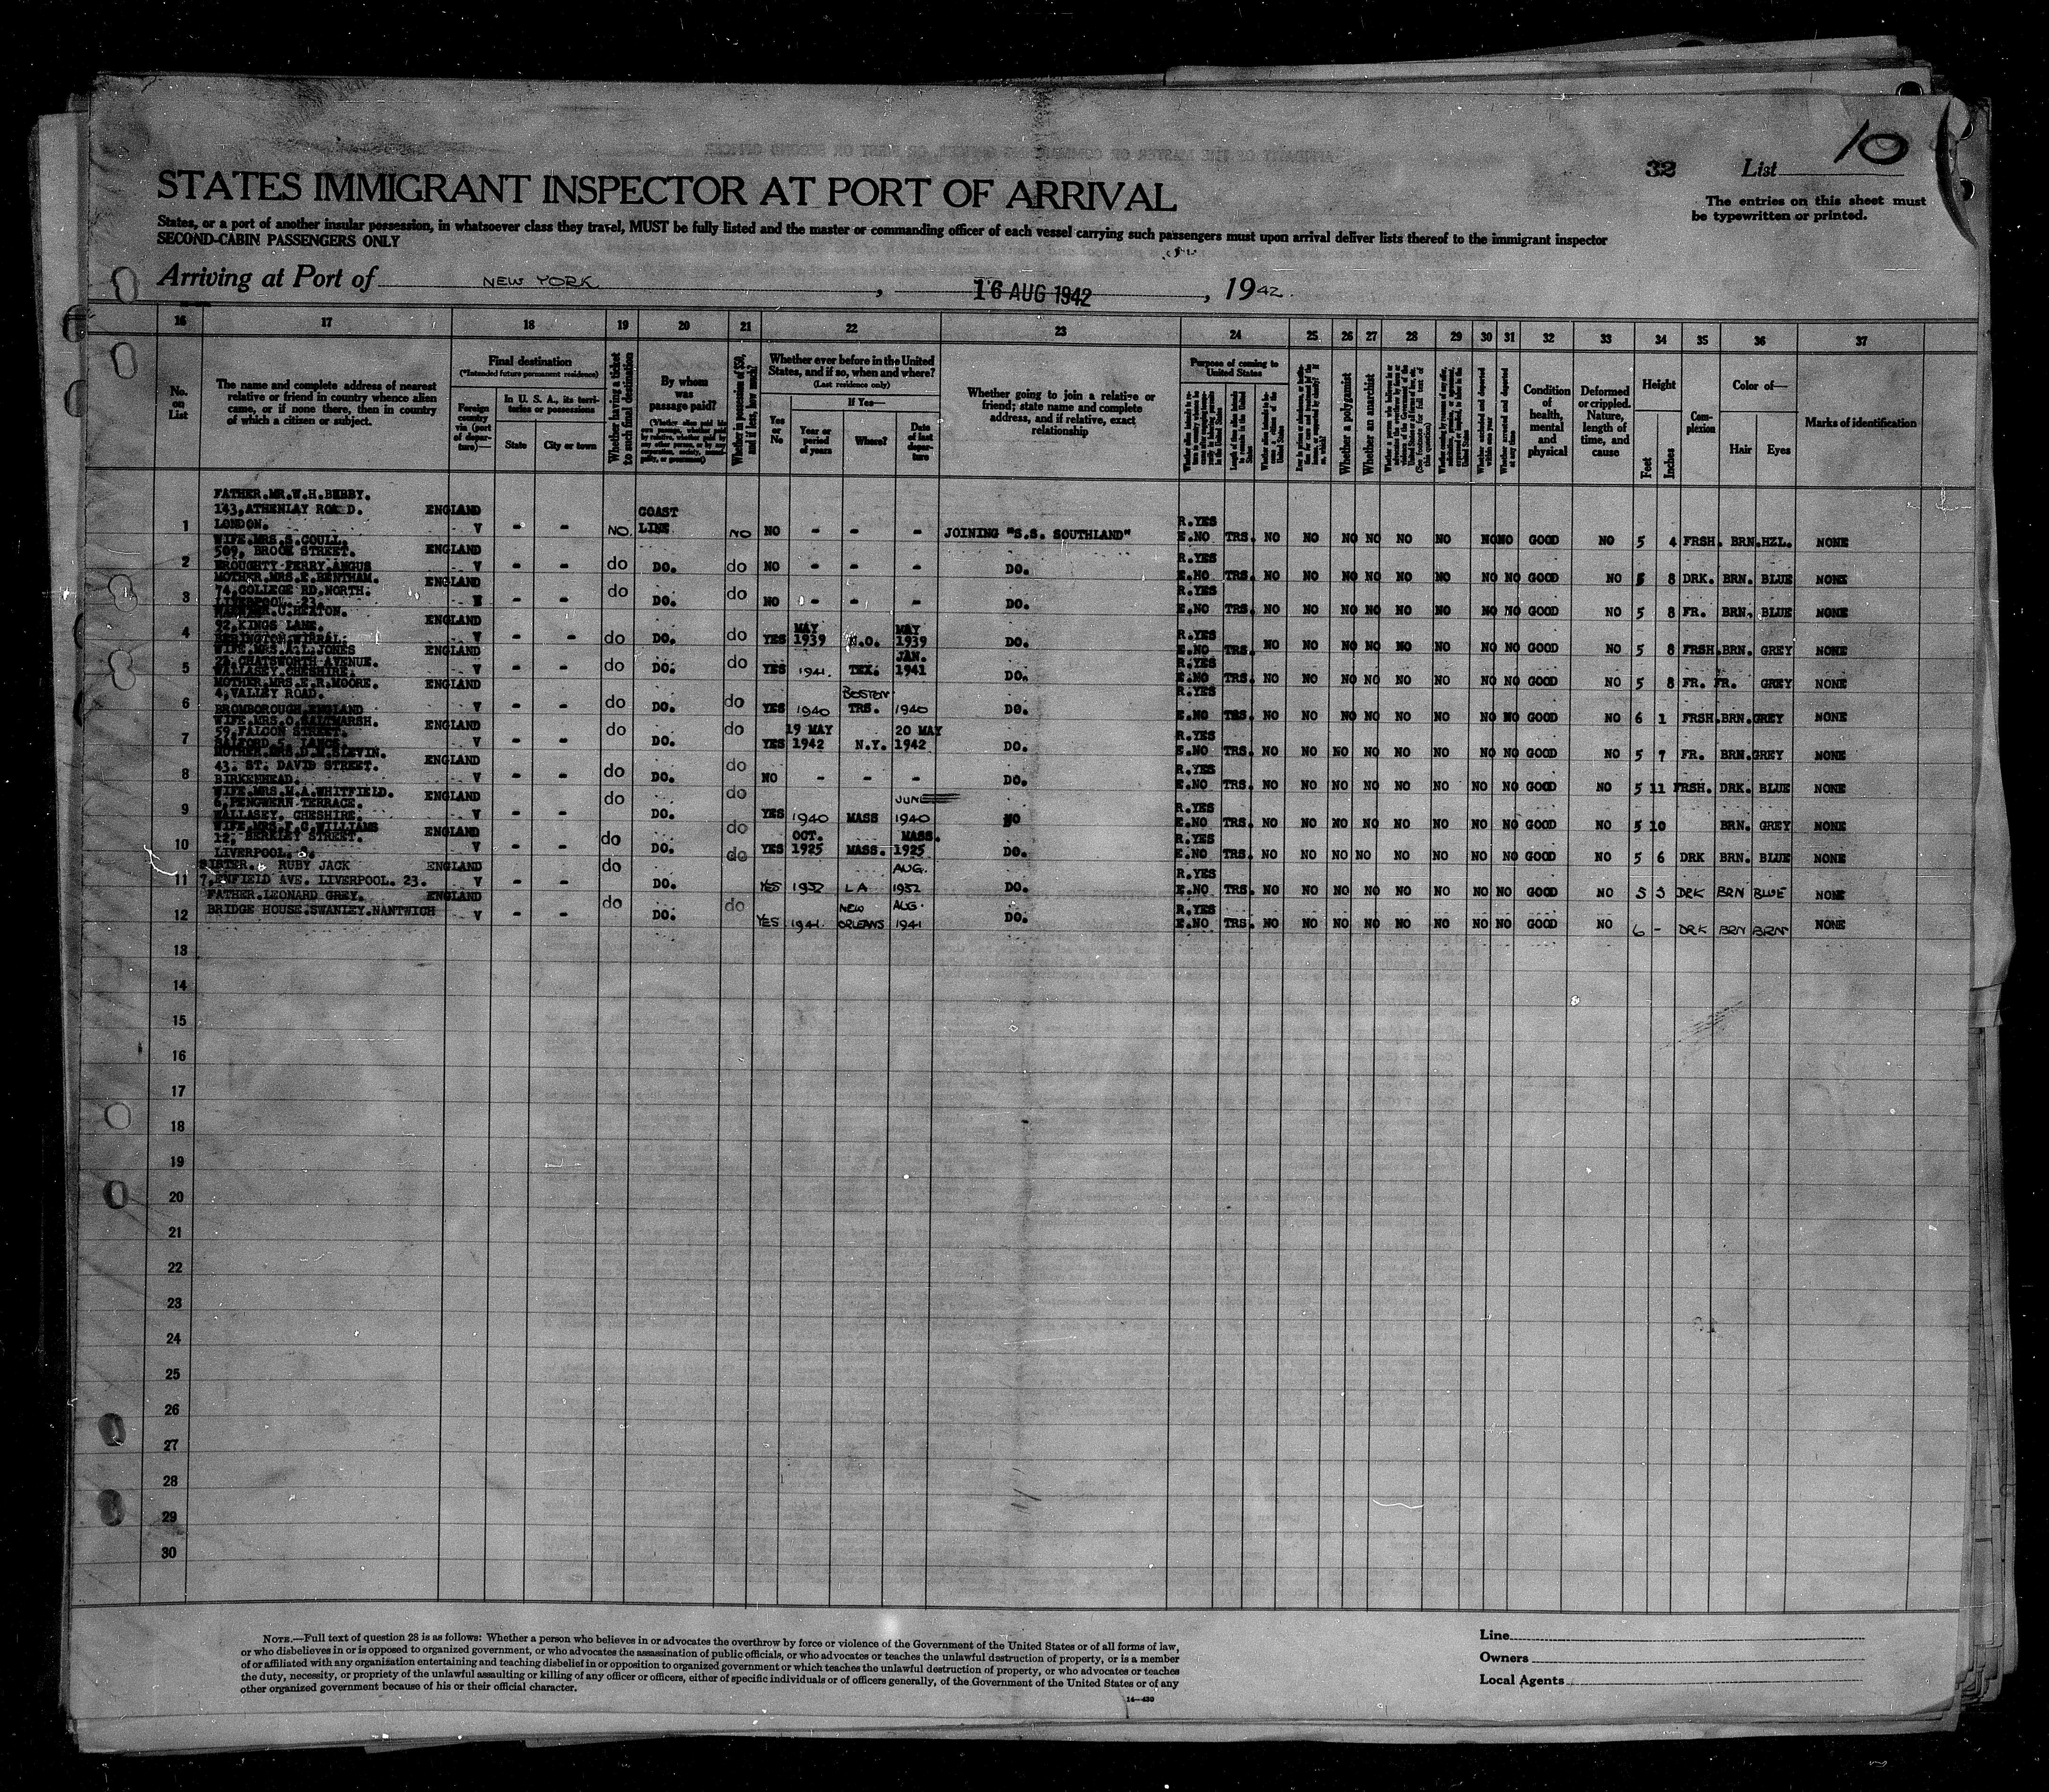 32 List 10
STATES IMMIGRANT INSPECTOR AT PORT OF ARRIVAL
The entries on this sheet must
be typewritten or printed.
States, or a port of another insular possession, in whatsoever class they travel, MUST be fully listed and the master or commanding officer of each vessel carrying such passengers must upon arrival deliver lists thereof to the immigrant inspector
SECOND-CABIN PASSENGERS ONLY
Arriving at Port of NEW YORK, 16 AUG 1942, 1942.
16 17 18 19 20 21 22 23 24 25 26 27 28 29 30 31 32 33 34 35 36 37
No. on List
The name and complete address of nearest
relative or friend in country whence alien
came, or if none there, then in country
of which a citizen or subject.
Final destination
(*Intended future permanent residence)
Foreign country via (port of departure)—
In U. S. A., its territories or possessions
State
City or town
Whether having a ticket to such final destination
By whom was passage paid?
Whether in possession of $50, and if less, how much?
Whether ever before in the United
States, and if so, when and where?
(Last residence only)
Yes or No
If Yes—
Year or period of years
Where?
Date of last departure
Whether going to join a relative or
friend; state name and complete
address, and if relative, exact
relationship
Purpose of coming to United States
Whether a polygamist
Whether an anarchist
Condition of health, mental and physical
Deformed or crippled. Nature, length of time, and cause
Height
Feet
Inches
Complexion
Color of—
Hair
Eyes
Marks of identification
FATHER.MR.W.H.BEBBY.
143,ATHENLAY ROAD. ENGLAND COAST
1 LONDON. V - - NO LINE NO NO - - - JOINING "S.S. SOUTHLAND" R.YES E.NO TRS. NO NO NO NO NO NO NO NO GOOD NO 5 4 FRSH. BRN. HZL. NONE
WIFE.MRS.S.COULL.
509, BROOK STREET. ENGLAND
2 BROUGHTY FERRY.ANGUS V - - do DO. do NO - - - DO. R.YES E.NO TRS. NO NO NO NO NO NO NO NO GOOD NO 8 DRK. BRN. BLUE NONE
MOTHER.MRS.E.BENTHAM. ENGLAND
74,COLLEGE RD.NORTH.
3 LIVERPOOL. 23. do DO. do NO - - - DO. R.YES E.NO TRS. NO NO NO NO NO NO NO NO GOOD NO 5 8 FR. BRN. BLUE NONE
92,KINGS LANE. ENGLAND
4 BEBINGTON.WIRRAL. V - - do DO. do YES MAY 1939 MAY 1939 DO. R.YES E.NO TRS. NO NO NO NO NO NO NO NO GOOD NO 5 8 FRSH. BRN. GREY NONE
WIFE.MRS.A.L.JONES ENGLAND
CHATSWORTH AVENUE.
5 WALLASEY.CHESHIRE. V - - do DO. do YES 1941. TEX. JAN. 1941 DO. R.YES E.NO TRS. NO NO NO NO NO NO NO NO GOOD NO 5 8 FR. FR. GREY NONE
MOTHER.MRS.E.R.MOORE. ENGLAND
4,VALLEY ROAD.
6 BROMBOROUGH.ENGLAND V - - do DO. do YES 1940 BOSTON TRS. 1940 DO. R.YES E.NO TRS. NO NO NO NO NO NO NO NO GOOD NO 6 1 FRSH. BRN. GREY NONE
WIFE.MRS.O.SALTMARSH. ENGLAND
59,FALCON STREET.
7 V - - do DO. do YES 19 MAY 1942 N.Y. 20 MAY 1942 DO. R.YES E.NO TRS. NO NO NO NO NO NO NO NO GOOD NO 5 7 FR. BRN. GREY NONE
MOTHER.MRS.D.M.SLEVIN.
43. ST. DAVID STREET. ENGLAND
8 BIRKENHEAD. V - - do DO. do NO - - - DO. R.YES E.NO TRS. NO NO NO NO NO NO NO NO GOOD NO 5 11 FRSH. DRK. BLUE NONE
WIFE.MRS.M.A.WHITFIELD. ENGLAND
6,PENGWERN TERRACE.
9 WALLASEY. CHESHIRE. V - - do DO. do YES 1940 MASS JUNE 1940 R.YES E.NO TRS. NO NO NO NO NO NO NO NO GOOD NO 5 10 BRN. GREY NONE
WIFE.MRS.F.G.WILLIAMS ENGLAND
12, BERKLEY STREET.
10 LIVERPOOL. 8. V - - do DO. do YES OCT. 1925 MASS. MASS. 1925 DO. R.YES E.NO TRS. NO NO NO NO NO NO NO NO GOOD NO 5 6 DRK BRN. BLUE NONE
SISTER. RUBY JACK ENGLAND
11 7,ENFIELD AVE. LIVERPOOL. 23. V - - do DO. do YES 1932 LA AUG. 1932 DO. R.YES E.NO TRS. NO NO NO NO NO NO NO NO GOOD NO 5 5 DRK BRN BLUE NONE
FATHER.LEONARD GREY. ENGLAND
12 BRIDGE HOUSE.SWANLEY.NANTWICH V - - do DO. do YES 1941. NEW ORLEANS AUG. 1941 DO. R.YES E.NO TRS. NO NO NO NO NO NO NO NO GOOD NO 6 - DRK BRN BRN NONE
13
14
15
16
17
18
19
20
21
22
23
24
25
26
27
28
29
30
NOTE.—Full text of question 28 is as follows: Whether a person who believes in or advocates the overthrow by force or violence of the Government of the United States or of all forms of law,
or who disbelieves in or is opposed to organized government, or who advocates the assassination of public officials, or who advocates or teaches the unlawful destruction of property, or is a member
of or affiliated with any organization entertaining and teaching disbelief in or opposition to organized government or which teaches the unlawful destruction of property, or who advocates or teaches
the duty, necessity, or propriety of the unlawful assaulting or killing of any officer or officers, either of specific individuals or of officers generally, of the Government of the United States or of any
other organized government because of his or their official character.
14—430
Line
Owners
Local Agents